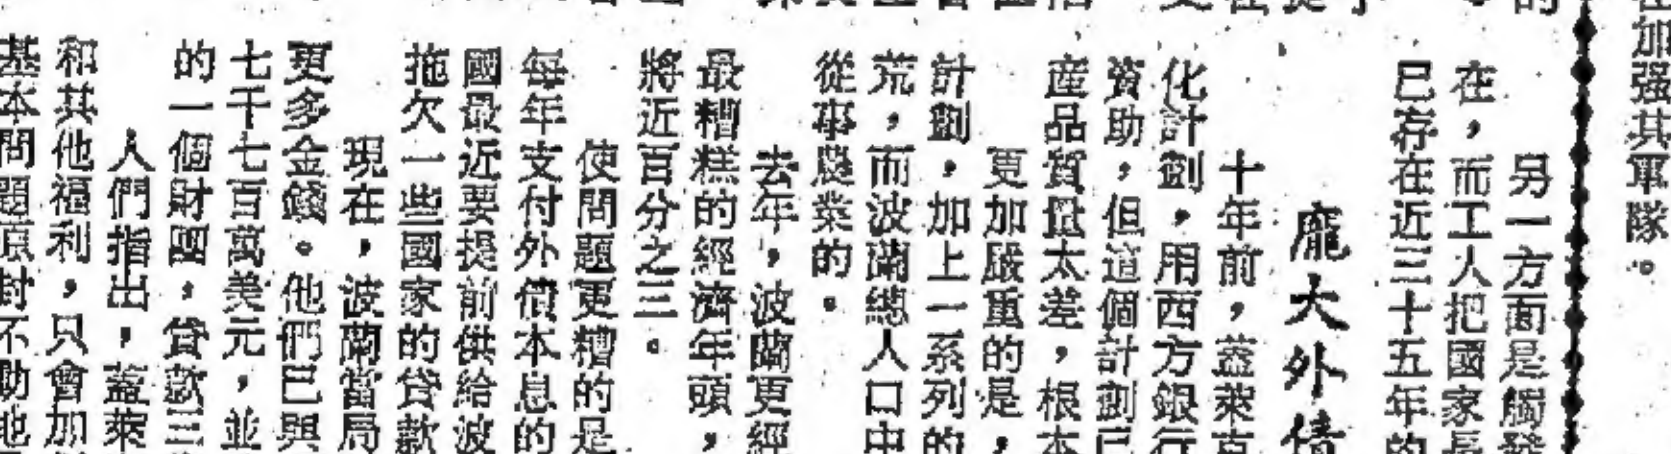 在加强其軍隊。
另一方面是觸發
在，而工人把國家長
已存在近三十五年的
龐大外債
十年前，蓋萊克
化計劃，用西方銀行
資助，但這個計劃已
産品質量太差，根本
更加嚴重的是，
計劃，加上一系列的
荒，而波蘭總人口中
從事農業的。
去年，波蘭更經
最糟糕的經濟年頭，
將近百分之三。
使問題更糟的是
每年支付外債本息的
國最近要提前供給波
拖欠一些國家的貸款
現在，波蘭當局
更多金錢。他們已與
七千七百萬美元，並
的一個財團，貸款三
人們指出，蓋萊
和其他福利，只會加
基本問題原封不動地